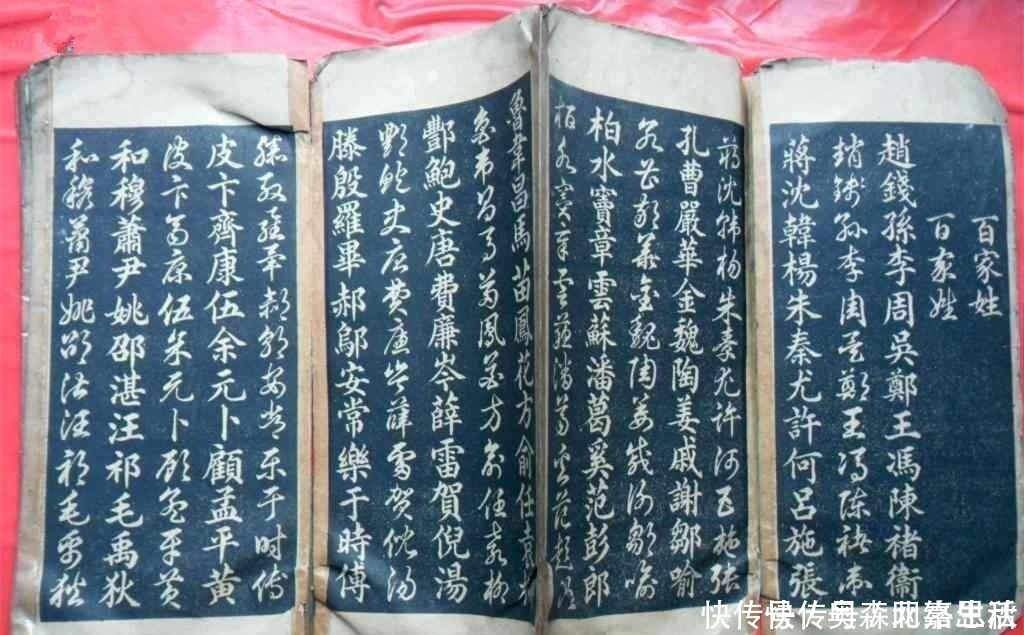 百家姓
百家姓
趙錢孫李周吳鄭王馮陳褚衞
趙錢孫李周吳鄭王馮陳褚衞
蔣沈韓楊朱秦尤許何呂施張
蔣沈韓楊朱秦尤許何呂施張
孔曹嚴華金魏陶姜戚謝鄒喻
孔曹嚴華金魏陶姜戚謝鄒喻
柏水竇章雲蘇潘葛奚范彭郎
柏水竇章雲蘇潘葛奚范彭郎
魯韋昌馬苗鳳花方俞任袁柳
魯韋昌馬苗鳳花方俞任袁柳
酆鮑史唐費廉岑薛雷賀倪湯
酆鮑史唐費廉岑薛雷賀倪湯
滕殷羅畢郝鄔安常樂于時傅
滕殷羅畢郝鄔安常樂于時傅
皮卞齊康伍余元卜顧孟平黃
皮卞齊康伍余元卜顧孟平黃
和穆蕭尹姚邵湛汪祁毛禹狄
和穆蕭尹姚邵湛汪祁毛禹狄